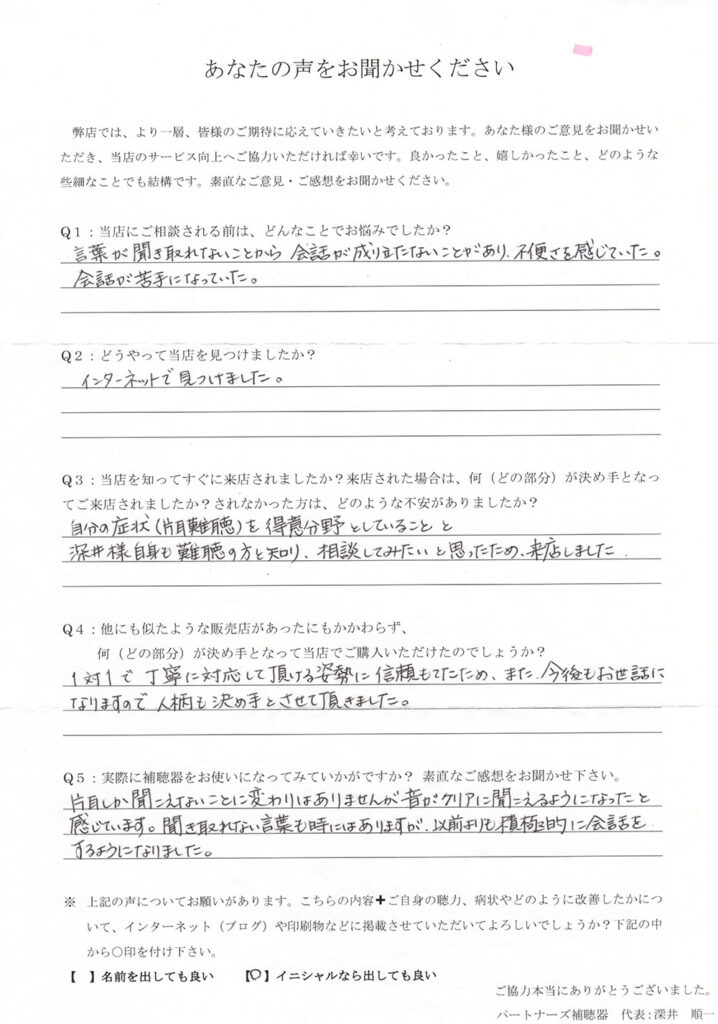 あなたの声をお聞かせください
弊店では、より一層、皆様のご期待に応えていきたいと考えております。あなた様のご意見をお聞かせい
ただき、当店のサービス向上へご協力いただければ幸いです。良かったこと、嬉しかったこと、どのような
些細なことでも結構です。素直なご意見・ご感想をお聞かせください。
Q1：当店にご相談される前は、どんなことでお悩みでしたか？
言葉が聞き取れないことから 会話が成り立たないことがあり、不便さを感じていた。
会話が苦手になっていた。
Q2：どうやって当店を見つけましたか？
インターネットで見つけました。
Q3：当店を知ってすぐに来店されましたか？来店された場合は、何（どの部分）が決め手となっ
てご来店されましたか？されなかった方は、どのような不安がありましたか？
自分の症状(片耳難聴)を得意分野としていることと
深井様自身も難聴の方と知り、相談してみたいと思ったため、来店しました
Q4：他にも似たような販売店があったにもかかわらず、
何（どの部分）が決め手となって当店でご購入いただけたのでしょうか？
1対1で丁寧に対応して頂ける姿勢に信頼もてたため、また、今後もお世話に
なりますので人柄も決め手とさせて頂きました。
Q5：実際に補聴器をお使いになってみていかがですか？ 素直なご感想をお聞かせ下さい。
片耳しか聞こえないことに変わりはありませんが音がクリアに聞こえるようになったと
感じています。聞き取れない言葉も時にはありますが、以前よりも積極的に会話を
するようになりました。
※ 上記の声についてお願いがあります。こちらの内容＋ご自身の聴力、病状やどのように改善したかにつ
いて、インターネット（ブログ）や印刷物などに掲載させていただいてよろしいでしょうか？下記の中
から〇印を付け下さい。
【 】名前を出しても良い 【〇】イニシャルなら出しても良い
ご協力本当にありがとうございました。
パートナーズ補聴器 代表：深井 順一